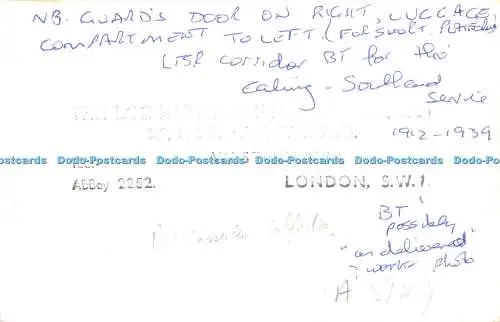 NB. GUARD'S DOOR ON RIGHT, LUGGAGE
COMPARTMENT TO LEFT (FOR SHORT
LTSR corridor BT for the
Ealing - Southend
Service
1912-1939
Dodo-Postcards Dodo-Postcards Dodo-Postcards Dodo-Postcards Dodo-Postcards
ABBey 2252.
LONDON, S.W.1.
BT
possibly
"as delivered"
? works photo
A